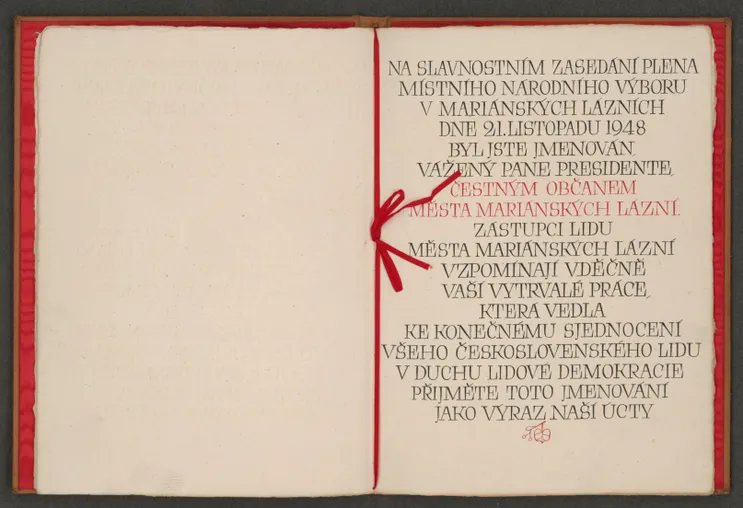 NA SLAVNOSTNÍM ZASEDÁNÍ PLENA
MÍSTNÍHO NÁRODNÍHO VÝBORU
V MARIÁNSKÝCH LÁZNÍCH
DNE 21. LISTOPADU 1948
BYL JSTE JMENOVÁN,
VÁŽENÝ PANE PRESIDENTE,
ČESTNÝM OBČANEM
MĚSTA MARIÁNSKÝCH LÁZNÍ.
ZÁSTUPCI LIDU
MĚSTA MARIÁNSKÝCH LÁZNÍ
VZPOMÍNAJÍ VDĚČNĚ
VAŠÍ VYTRVALÉ PRÁCE,
KTERÁ VEDLA
KE KONEČNÉMU SJEDNOCENÍ
VŠEHO ČESKOSLOVENSKÉHO LIDU
V DUCHU LIDOVÉ DEMOKRACIE
PŘIJMĚTE TOTO JMENOVÁNÍ
JAKO VÝRAZ NAŠÍ ÚCTY